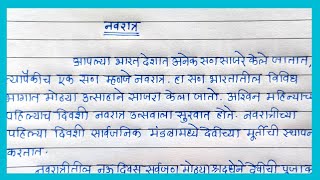 नवरात्र
आपल्या भारत देशात अनेक सण साजरे केले जातात,
त्यापैकीच एक सण म्हणजे नवरात्र. हा सण भारतातील विविध
भागात मोठ्या उत्साहाने साजरा केला जातो. अश्विन महिन्याच
पहिल्याच दिवशी नवरात्र उत्सवाला सुरुवात होते. नवरात्रीच्या
पहिल्या दिवशी सार्वजनिक मंडळामध्ये देवीच्या मूर्तीची स्थापन
करतात.
नवरात्रीतील नऊ दिवस सर्वजण मोठ्या श्रद्धेने देवीची पूजा क